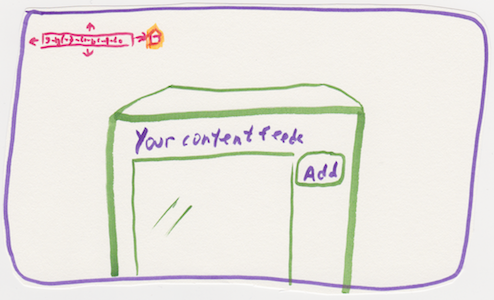 Your content feeds
Add